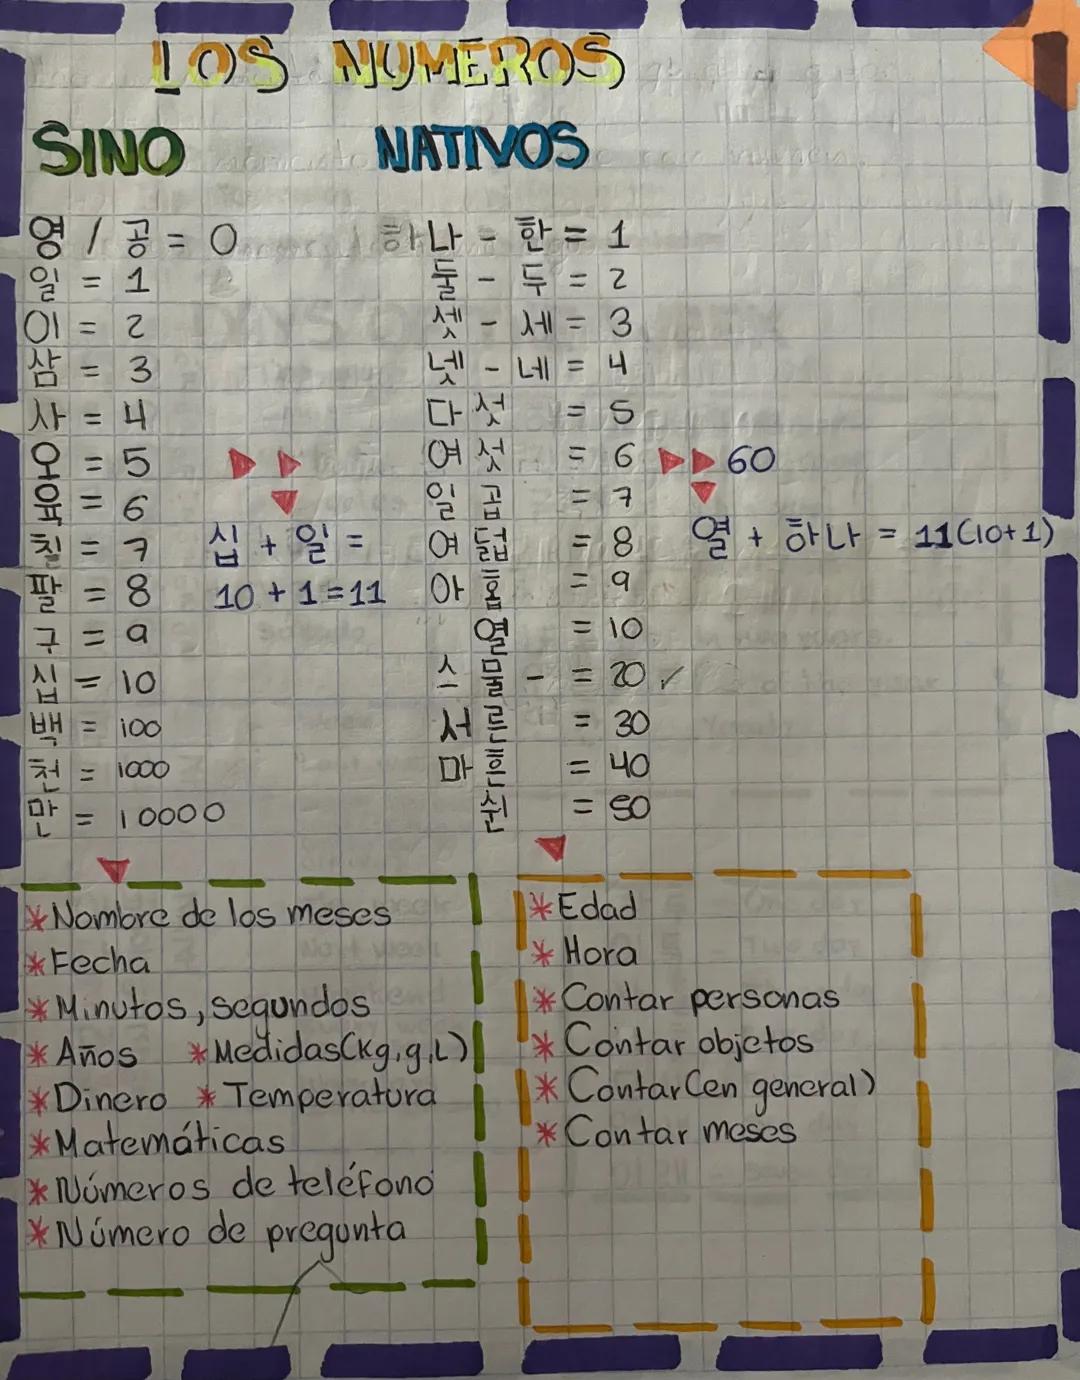 LOS NUMEROS
SINO
영 / 공 = 0
일 = 1
이 = 2
삼 = 3
사 = 4
오 = 5
육 = 6
칠 = 7
팔 = 8
구 = 9
십 = 10
백 = 100
천 = 1000
만 = 10000
십 + 일 =
10 + 1 = 11
NATIVOS
하나 - 한 = 1
둘 - 두 = 2
셋 - 세 = 3
넷 - 네 = 4
다섯 = 5
여섯 = 6
일곱 = 7
여덟 = 8
아홉 = 9
열 = 10
스물 - = 20 ✓
서른 = 30
마흔 = 40
쉰 = 50
60
열 + 하나 = 11 (10+1)
* Nombre de los meses
* Fecha
* Minutos, segundos
* Años * Medidas (Kg, g, L)
* Dinero * Temperatura
* Matemáticas
* Números de teléfono
* Número de pregunta
* Edad
* Hora
* Contar personas
* Contar objetos
* Contar (en general)
* Contar meses